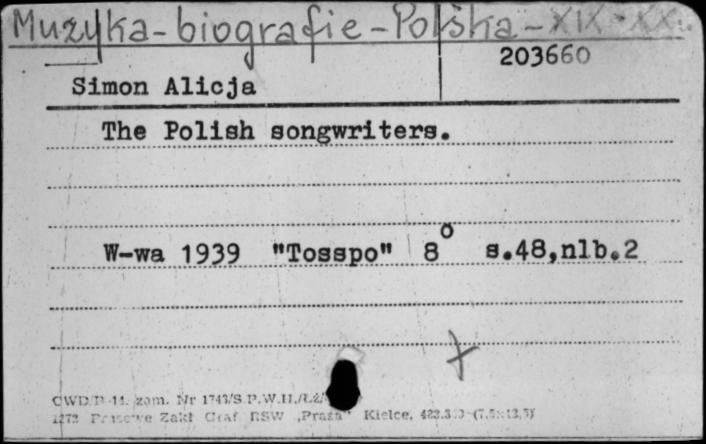 Muzyka - biografie - Polska - XIX - XX w.
203660
Simon Alicja
The Polish songwriters.
W-wa 1939 "Tosspo" 8° s.48,nlb.2
zam. Nr 1743/S.P.W.H./Łż/
Zakł Graf RSW „Prasa" Kielce,